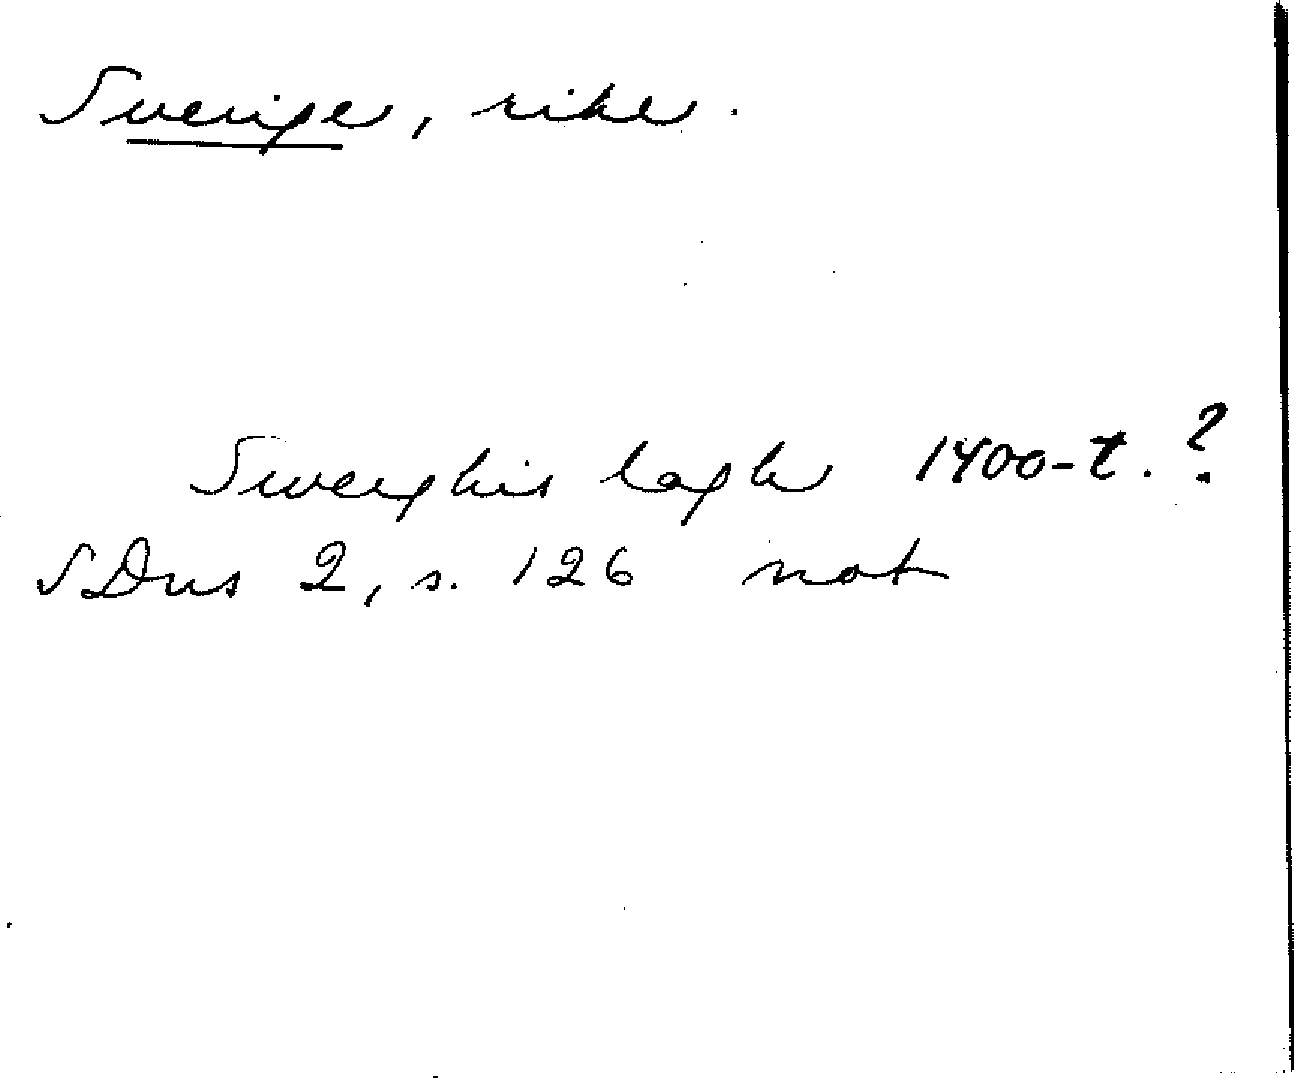 Sverige, rike.
Swerghis lagh 1400-t.?
SDns 2, s. 126 not